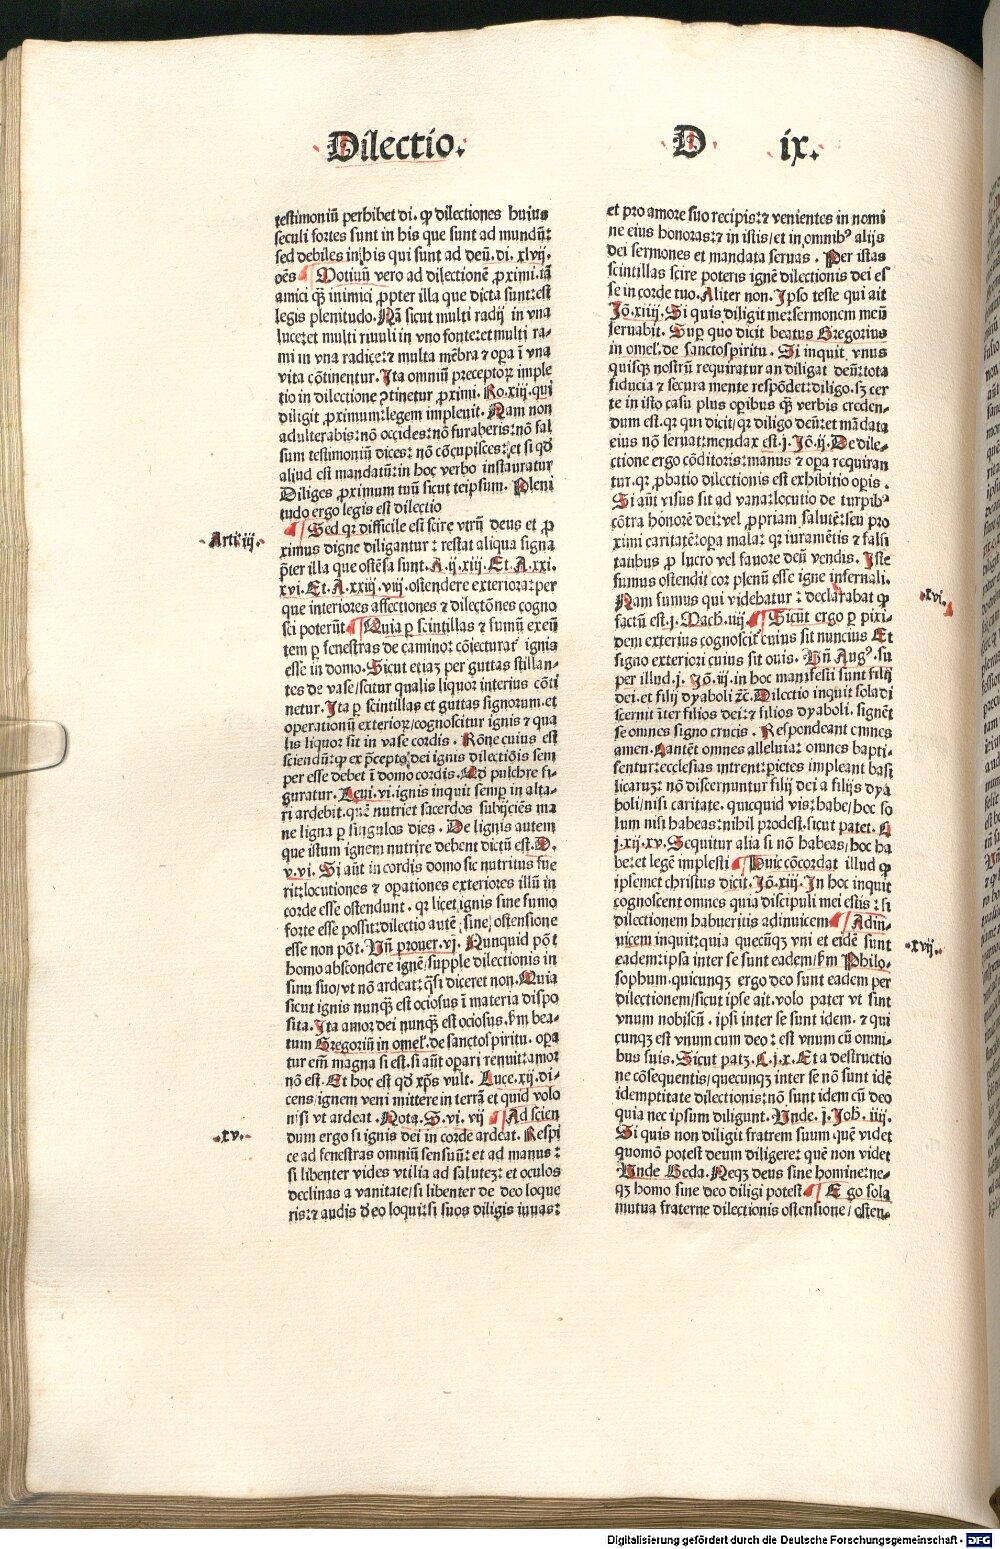 Dilectio.
D ix.
testimoniū perhibet di. ꝙ dilectiones huius
seculi fortes sunt in his que sunt ad mundū:
sed debiles in his qui sunt ad deū. di. xlvij.
oēs ¶ Motiuū vero ad dilectionē ꝓximi. tā
amici ꝙ̄ inimici ꝓpter illa que dicta sunt: est
legis plenitudo. Nā sicut multi radij in vna
luce: et multi riuuli in vno fonte: et multi ra-
mi in vna radice: ⁊ multa mēbra ⁊ oꝑa ī vna
vita cōtinentur. Ita omniū preceptoꝝ imple
tio in dilectione ꝯtinetur ꝓximi. Ro. xiij. qui
diligit ꝓximum: legem impleuit. Nam non
adulterabis: nō occides: nō furaberis: nō fal
sum testimoniū dices: nō cōcupisces: et si qd̄
aliud est mandatū: in hoc verbo instauratur
Diliges ꝓximum tuū sicut teipsum. Pleni
tudo ergo legis est dilectio
Arti. iij.
¶ Sed qꝛ difficile est scire vtrū deus et ꝓ
ximus digne diligantur: restat aliqua signa
p̄ter illa que ostēsa sunt. A. ij. xiij. Et. A. xxi.
xvi. Et. A. xxiij. viij. ostendere exteriora: per
que interiores affectiones ⁊ dilectōnes cogno
sci poterūt ¶ Quia ꝑ scintillas ⁊ fumū exeū
tem ꝑ fenestras de camino: cōiecturat᷑ ignis
esse in domo. Sicut etiaꝫ per guttas stillan-
tes de vase/scitur qualis liquor interius cōti
netur. Ita ꝑ scintillas et guttas signorum. et
operationū exterioꝝ/cognoscitur ignis ⁊ qua
lis liquor sit in vase cordis. Rōne cuius est
sciendū: ꝙ ex p̄cepto dei ignis dilectiōis sem
per esse debet ī domo cordis. Qd̄ pulchre fi-
guratur. Leui. vi. ignis inquit semꝑ in alta-
ri ardebit. quē nutriet sacerdos subijciēs ma
ne ligna ꝑ singulos dies. De lignis autem
que istum ignem nutrire debent dictū est. D.
v. vi. Si aūt in cordis domo sic nutritus fue
rit: locutiones ⁊ oꝑationes exteriores illū in
corde esse ostendunt. qꝛ licet ignis sine fumo
forte esse possit: dilectio autē sine ostensione
esse non pōt. Vn̄ prouer. vj. Nunquid pōt
homo abscondere ignē/supple dilectionis in
sinu suo/vt nō ardeat: q̄si diceret non. Quia
sicut ignis nunꝙ̄ est ociosus ī materia dispo
sita. Ita amor dei nunꝙ̄ est ociosus. ẜm bea-
tum Gregoriū in omel̓. de sanctospiritu. oꝑa
tur em̄ magna si est. si aūt oꝑari renuit: amor
nō est. Et hoc est qd̄ xp̄s vult. Luce. xij. di-
cens/ignem veni mittere in terrā et quid volo
nisi vt ardeat. Nota. S. vi. vij ¶ Ad scien
xv.
dum ergo si ignis dei in corde ardeat. Respi
ce ad fenestras omniū sensuū: et ad manus:
si libenter vides vtilia ad saluteꝫ: et oculos
declinas a vanitate/si libenter de deo loque
ris: ⁊ audis d̓eo loqui: si suos diligis iuuas:
et pro amore suo recipis: ⁊ venientes in nomi
ne eius honoras: ⁊ in istis/et in omnibꝰ alijs
dei sermones et mandata seruas. Per istas
scintillas scire poteris ignē dilectionis dei es
se in corde tuo. Aliter non. Ipso teste qui ait
Jō. xiiij. Si quis diligit me: sermonem meū
seruabit. Suꝑ quo dicit beatus Gregorius
in omel̓. de sanctospiritu. Si inquit vnus
quisqꝫ nostrū requiratur an diligat deū: tota
fiducia ⁊ secura mente respōdet: diligo. sꝫ cer
te in isto casu plus oꝑibus ꝙ̄ verbis creden-
dum est. qꝛ qui dicit/qꝛ diligo deū: et mādata
eius nō seruat: mendax est. j. Jō. ij. De dile-
ctione ergo cōditoris: manus ⁊ oꝑa requiran
tur. qꝛ ꝓbatio dilectionis est exhibitio oꝑis.
Si aūt visus sit ad vana: locutio de turpibꝰ
cōtra honorē dei: vel ꝓpriam salutē: seu pro
ximi caritatē: oꝑa mala: qꝛ iuramētis ⁊ falsi
tatibus ꝓ lucro vel fauore deū vendis. Iste
fumus ostendit cor plenū esse igne infernali.
xvi.
Nam fumus qui videbatur: declarabat ꝙ
factū est. j. Mach. iiij. ¶ Sicut ergo ꝑ pixi-
dem exterius cognoscit᷑ cuius sit nuncius Et
signo exteriori cuius sit ouis. Vn̄ Augꝰ. su
per illud. j. Jō. iij. in hoc manifesti sunt filij
dei. et filij dyaboli ⁊c̄. Dilectio inquit sola di
scernit iter filios dei: ⁊ filios dyaboli. signēt
se omnes signo crucis. Respondeant omnes
amen. Cantēt omnes alleluia: omnes bapti-
sentur: ecclesias intrent: pietes impleant basi
licaruꝫ: nō discernuntur filij dei a filijs dya
boli/nisi caritate. quicquid vis: habe/hoc so
lum nisi habeas: nihil prodest. sicut patet. C
j. xij. xv. Sequitur alia si nō habeas/hoc ha
be: et legē implesti ¶ Huic cōcordat illud ꝙ
ipsemet christus dicit. Jō. xiij. In hoc inquit
cognoscent omnes quia discipuli mei estis: si
dilectionem habueritis adinuicem ¶ Adin-
xvij.
uicem inquit: quia quecūqꝫ vni et eidē sunt
eadem: ipsa inter se sunt eadem/ẜm Philo-
sophum. quicunqꝫ ergo deo sunt eadem per
dilectionem/sicut ipse ait. volo pater vt sint
vnum nobiscū. ipsi inter se sunt idem. ⁊ qui
cunqꝫ est vnum cum deo: est vnum cū omni-
bus suis. Sicut patꝫ. C. j. x. Et a destructio
ne cōsequentis/quecunqꝫ inter se nō sunt idē
idemptitate dilectionis: nō sunt idem cū deo
quia nec ipsum diligunt. Vnde. j. Joh. iiij.
Si quis non diligit fratrem suum quē videt
quomō potest deum diligere: quē non videt
Vnde Beda. Neqꝫ deus sine homine: ne-
qꝫ homo sine deo diligi potest ¶ Ego sola
mutua fraterne dilectionis ostensione/osten-
Digitalisierung gefördert durch die Deutsche Forschungsgemeinschaft - DFG